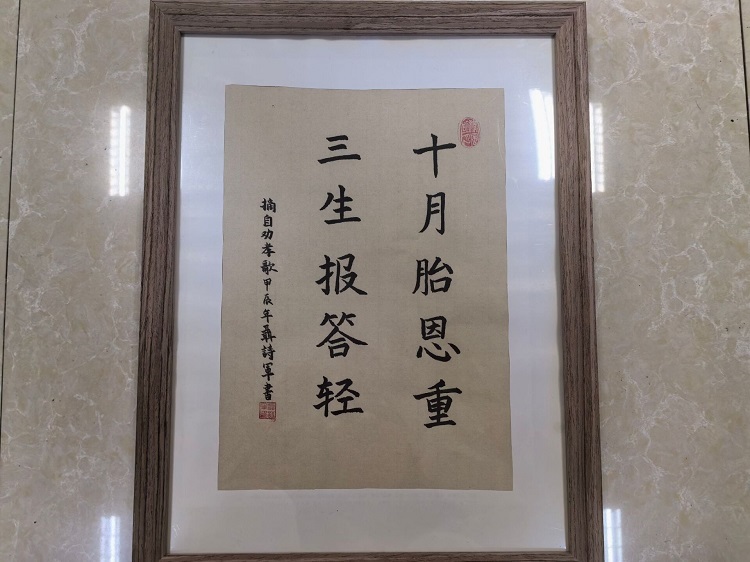 十月胎恩重
三生报答轻
摘自劝孝歌甲辰年聂詩军書